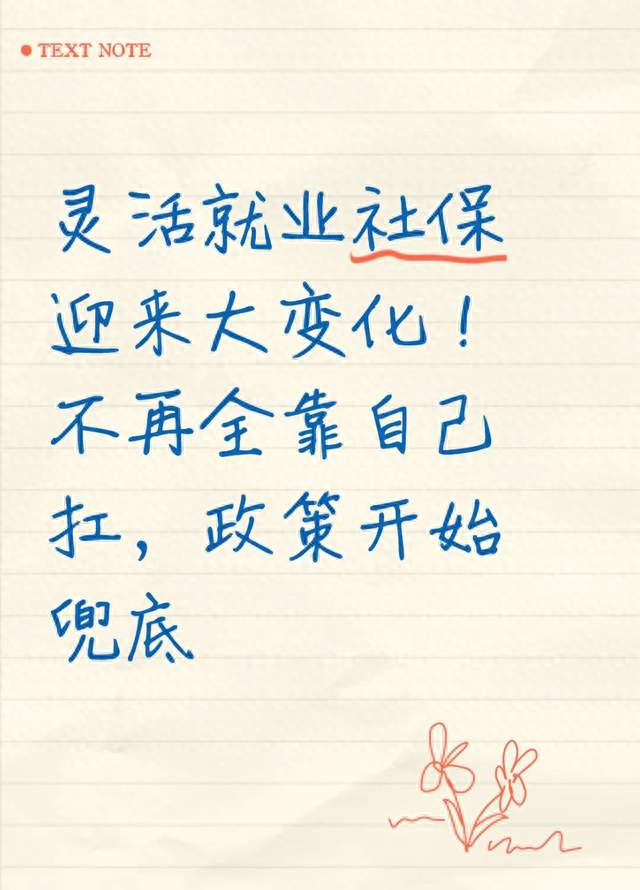 TEXT NOTE
灵活就业社保
迎来大变化！
不再全靠自己
扛，政策开始
兜底